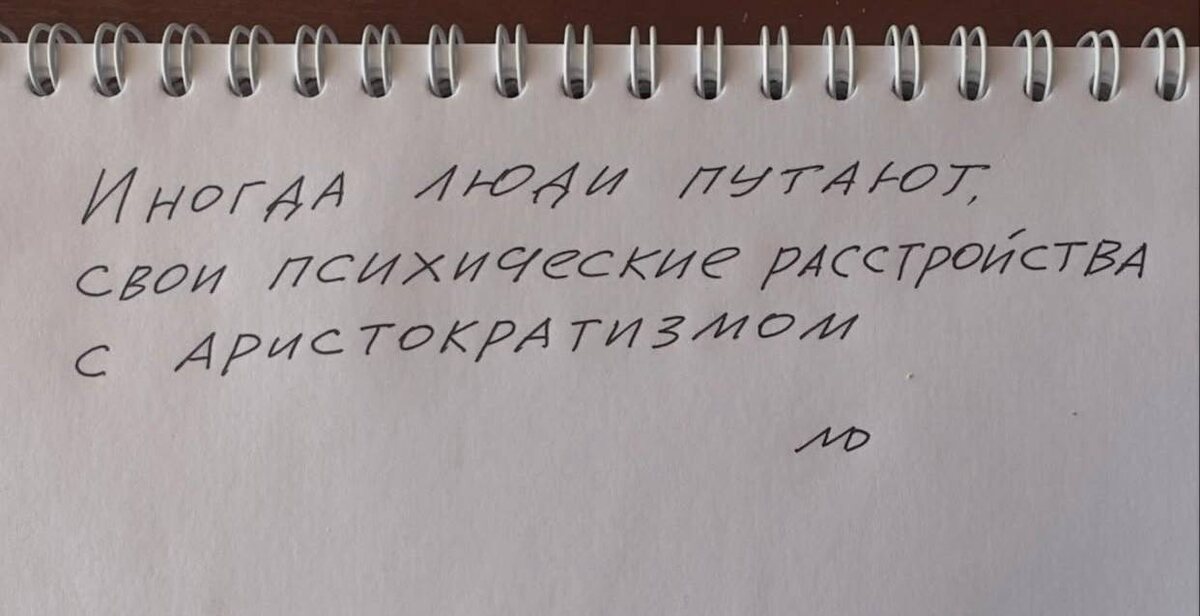 Иногда люди путают,
свои психические расстройства
с аристократизмом
мо